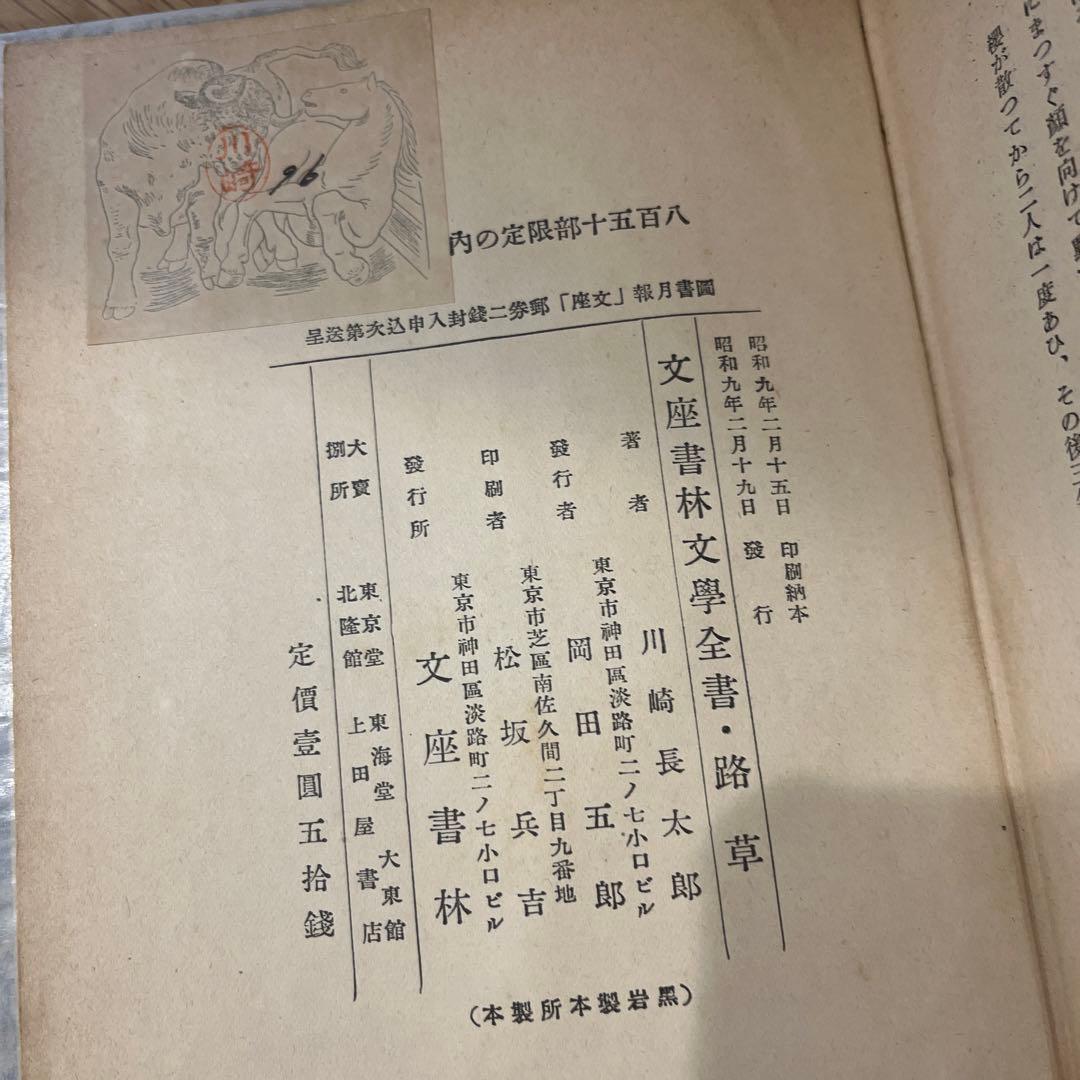 にまつすぐ顔を向けて
櫻が散つてから二人は一度あひ、その後
川崎
96
八百五十部限定の内
圖書月報「文座」郵券二錢封入申込次第送呈
昭和九年二月十五日 印刷納本
昭和九年二月十九日 發行
文座書林文學全書・路草
著者 川崎長太郎
東京市神田區淡路町二ノ七小口ビル
發行者 岡田五郎
東京市芝區南佐久間二丁目九番地
印刷者 松坂兵吉
東京市神田區淡路町二ノ七小口ビル
發行所 文座書林
大賣捌所 東京堂 東海堂 大東館
北隆館 上田屋書店
定價壹圓五拾錢
(黑岩製本所製本)